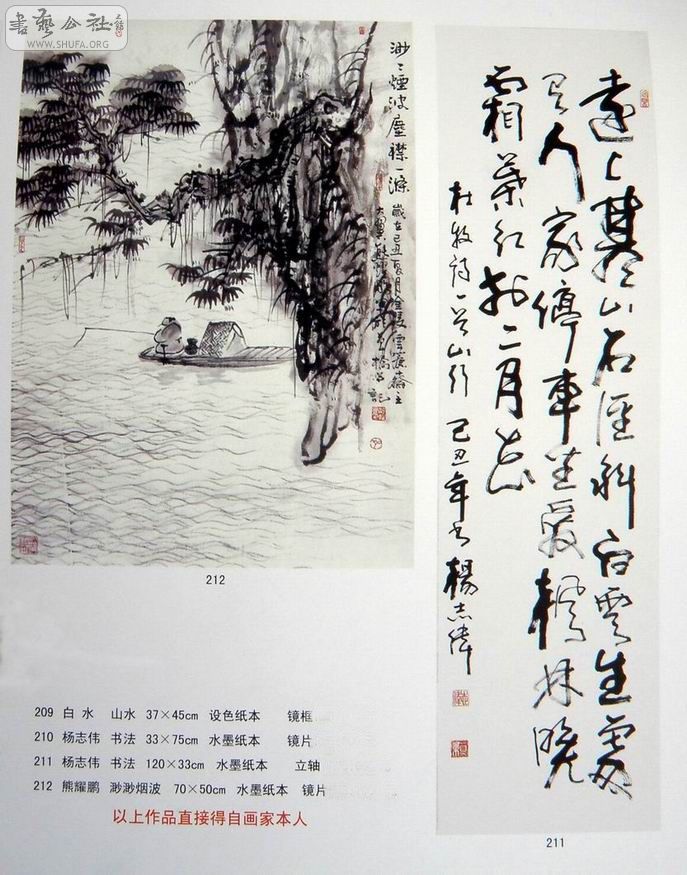 書藝公社
WWW.SHUFA.ORG
渺〻煙波塵襟一滌
歲在己丑夏月金陵雲
齋主
記
212
遠上寒山石徑斜白雲生處
有人家停車坐愛楓林晚
霜葉紅於二月花
杜牧詩一首山行 己丑年書 楊志偉
211
209 白 水 山水 37×45cm 设色纸本 镜框
210 杨志伟 书法 33×75cm 水墨纸本 镜片
211 杨志伟 书法 120×33cm 水墨纸本 立轴
212 熊耀鹏 渺渺烟波 70×50cm 水墨纸本 镜片
以上作品直接得自画家本人